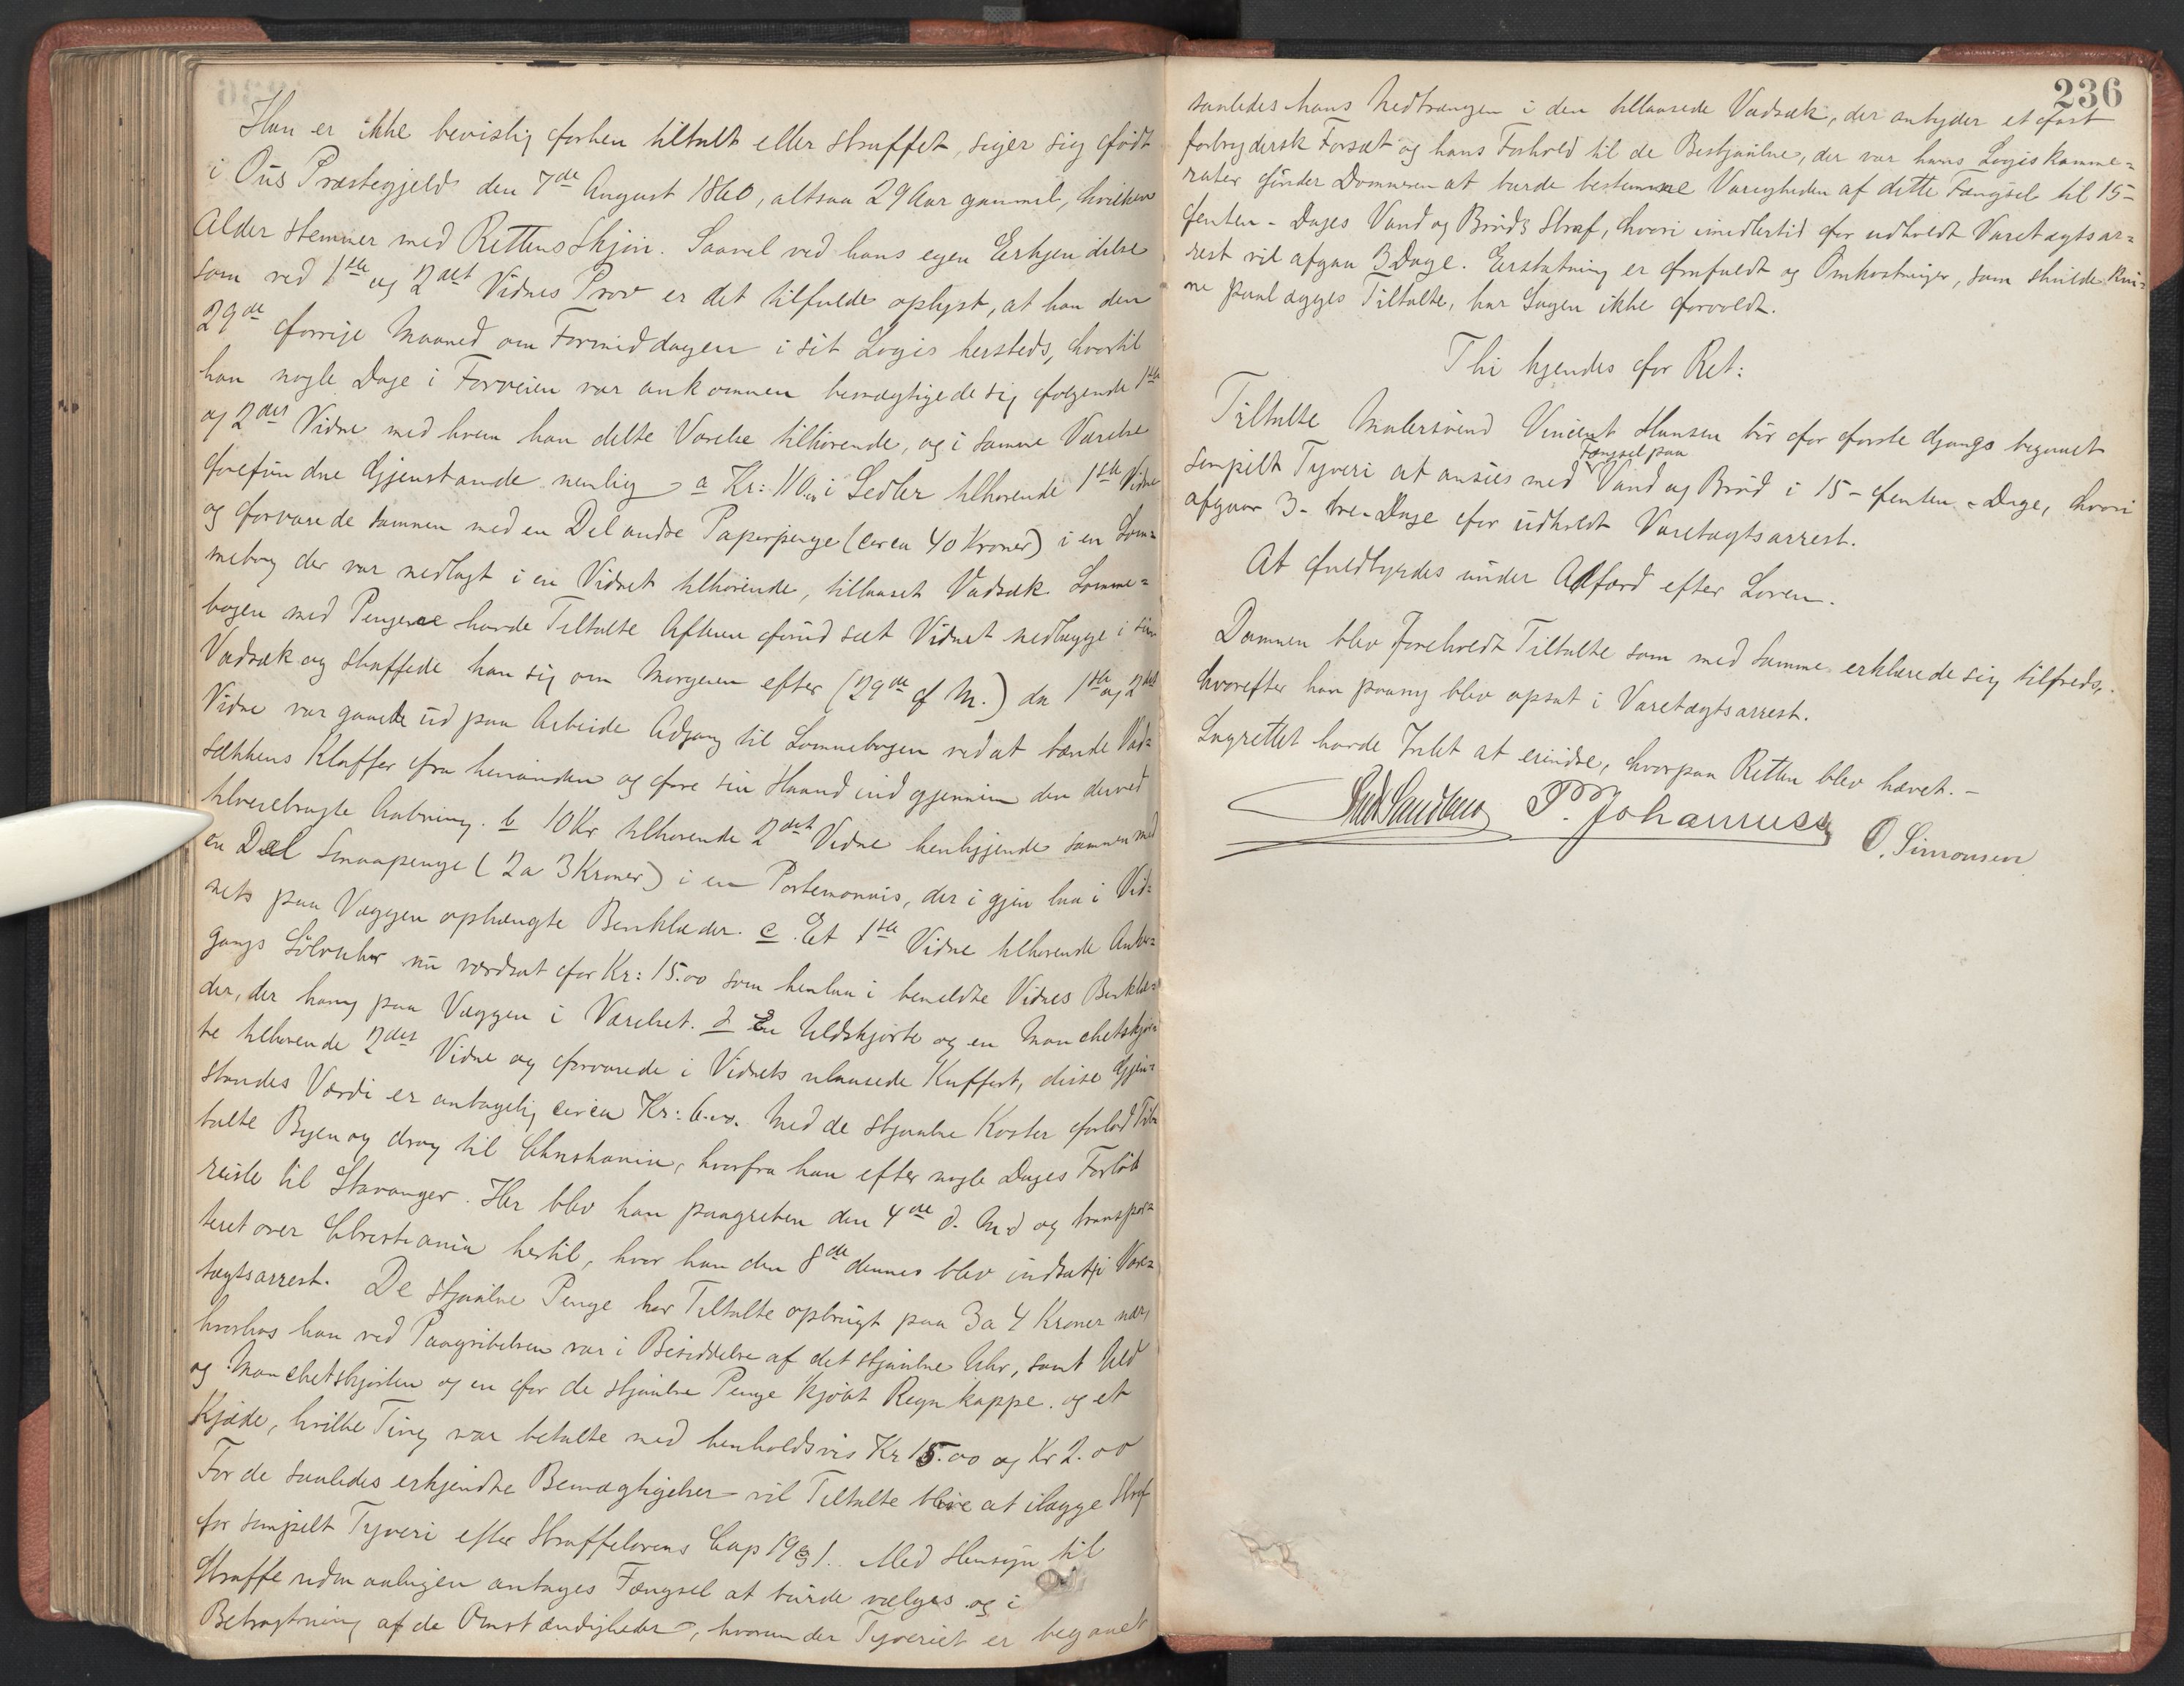 Han er ikke bevislig forhen tiltalt eller straffet, siger sig født
i Ous Præstegjeld den 7de August 1860, altsaa 29 Aar gammel, hvilken
Alder stemmer med Rettens Skjøn. Saavel ved hans egen Erkjendelse
som ved 1ste og 2det Vidnes Prov er det tilfulde oplyst, at han den
29de forrige Maaned om Formiddagen i sit Logis hersteds, hvortil
han nogle Dage i Forveien var ankommen bemægtigede sig følgende 1ste
og 2det Vidne med hvem han delte Værelse tilhørende, og i samme Værelse
forefundne Gjenstande nemlig a Kr: 110.00 i Sedler tilhørende 1ste Vidne
og forvarede sammen med en Del andre Papirpenge (circa 40 Kroner) i en Lom=
mebog der var nedlagt i en Vidnet tilhørende, tillaaset Vadsæk. Lomme=
bogen med Pengene havde Tiltalte Aftenen forud seet Vidnet nedlægge i sin
Vadsæk og skaffede han sig om Morgenen efter (29de f. M.) da 1ste og 2det
Vidne var gaaede ud paa Arbeide Adgang til Lommebogen ved at bænde Vad=
sækkens Klaffer fra hinanden og føre sin Haand ind gjennem den derved
tilveiebragte Aabning. b 10 Kr tilhørende 2det Vidne henliggende sammen med
en Del Smaapenge (2 a 3 Kroner) i en Portemonnais, der igjen laa i Vid=
nets paa Væggen ophængte Benklæder. c. Et 1ste Vidne tilhørende Anker=
gangs Sølvuhr nu værdsat for Kr: 15.00 som henlaa i bemeldte Vidnes Benklæ=
der, der hang paa Væggen i Værelset. d En Uldskjorte og en Manchetskjor=
te tilhørende 2det Vidne og forvarede i Vidnets ulaasede Kuffert, disse Gjen=
standes Værdi er antagelig circa Kr: 6.00. Med de stjaalne Koster forlod Til=
talte Byen og drog til Christiania, hvorfra han efter nogle Dages Forløb
reiste til Stavanger. Her blev han paagreben den 4de d. Md og transpor=
teret over Christiania hertil, hvor han den 8de dennes blev indsat i Vare=
tægtsarrest. De stjaalne Penge har Tiltalte opbrugt paa 3 a 4 Kroner nær,
hvorhos han ved Paagribelsen var i Besiddelse af det stjaalne Uhr, samt Uld
og Manchetskjorten og en for de stjaalne Penge kjøbt Regnkappe. og et
Kjæde, hvilke Ting var betalte med henholdsvis Kr 15.00 og Kr 2.00
For de saaledes erkjendte Bemægtigelser vil Tiltalte blive at ilægge Straf
for simpelt Tyveri efter Straffelovens Cap 19 § 1. Med Hensyn til
Straffeudmaalingen antages Fængsel at burde vælges og i
Betragtning af de Omstændigheder, hvorunder Tyveriet er begaaet
236
saaledes hans Nedtrængen i den tillaasede Vadsæk, der antyder et fast
forbrydersk Forsæt og hans Forhold til de Bestjaalne, der var hans Logiskamme=
rater finder Dommeren at burde bestemme Varigheden af dette Fængsel til 15-
femten - Dages Vand og Brøds Straf, hvori imidlertid for udholdt Varetægtsar=
rest vil afgaa 3 Dage. Erstatning er frafaldt og Omkostninger, som skulde kun=
ne paalægges Tiltalte, har Sagen ikke forvoldt.
Thi kjendes for Ret:
Tiltalte Malersvend Vincent Hansen bør for første Gangs begaaet
simpelt Tyveri at ansees med Fængsel paa Vand og Brød i 15 - femten - Dage, hvori
afgaar 3 - tre - Dage for udholdt Varetægtsarrest.
At fuldbyrdes under Adfærd efter Loven.
Dommen blev foreholdt Tiltalte som med samme erklærede sig tilfreds,
hvorefter han paany blev opsat i Varetægtsarrest.
Lagrettet havde Intet at erindre, hvorpaa Retten blev hævet. -
P. Johannesen
O. Simonsen